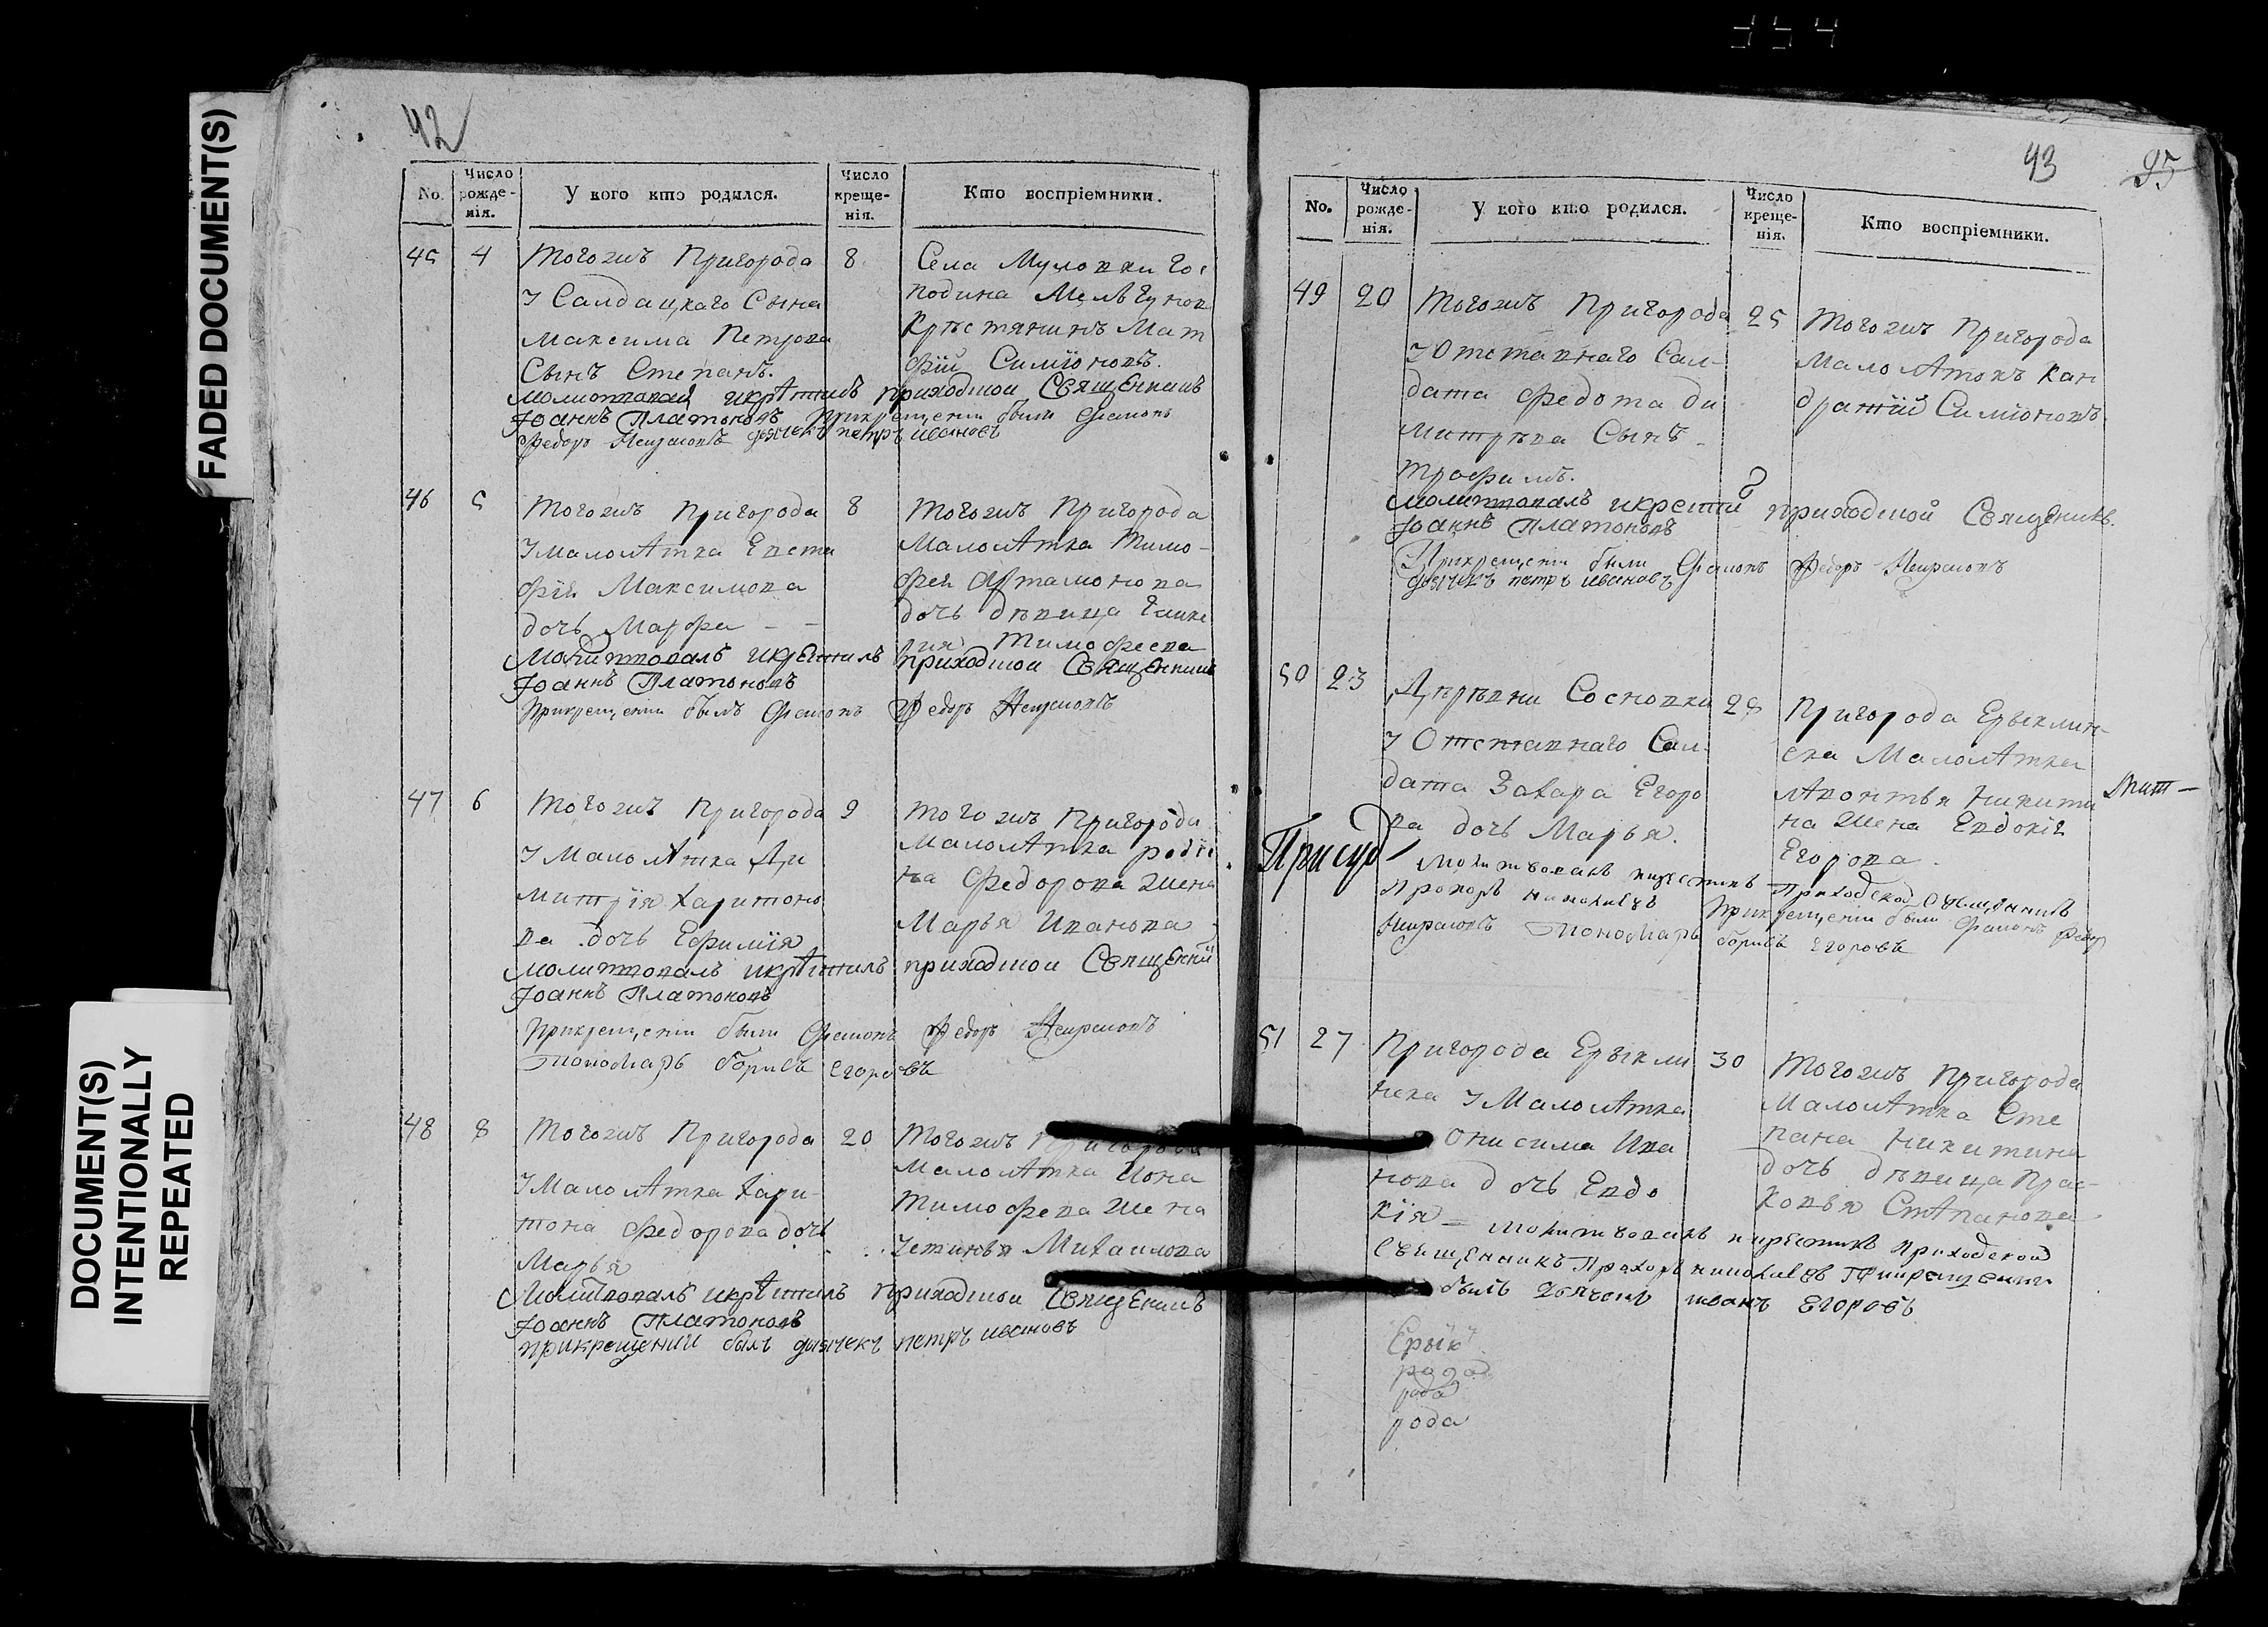 354
FADED DOCUMENT(S)
DOCUMENT(S)
INTENTIONALLY
REPEATED
42
No.
Число рожденія.
У кого кто родился.
Число крещенія.
Кто воспріемники.
45 4
Тогожъ Пригорода
У Салдацкаго Сына
Максима Петрова
Сынъ Степанъ.
8
Села Муловки Гос
подина Мельгунов
Крѣстянинъ Мат
фїй Симїоновъ.
Молитвовал икрѣстилъ приходской Священникъ
Іоаннъ Платоновъ Прикрещенїи были
Федоръ дьячекъ петръ ивановъ
46 5
Тогожъ Пригорода
У малолѣтка Евста
фїя Максимова
дочь Марфа - -
8
Тогожъ Пригорода
Малолѣтка Тимо-
фея Артамонова
дочь дѣвица
Тимофеева
Молитвовалъ икрѣстилъ приходской Священникъ
Іоаннъ Платоновъ
Прикрещенїи былъ Федоръ
47 6
Тогожъ Пригорода
У Малолѣтка Ди
митрїя Харитоно
ва дочь Ефимїя
9
Тогожъ Пригорода
Малолѣтка родїо
на Федорова жена
Марья Иванова
Молитвовалъ икрѣстилъ приходской Священни
Іоаннъ Платоновъ
Прикрещенїи были Федоръ
пономарь борисъ егоровъ
48 8
Тогожъ Пригорода
У Малолѣтка Хари-
тона Федорова дочь
Марья
20
Тогожъ Пригорода
Малолѣтка Иона
Тимофева жена
Устинья Михаилова
Молитвовалъ икрѣстилъ приходской Священикъ
Іоаннъ Платоновъ
прикрещении былъ дьячекъ петръ ивановъ
43 95
No.
Число рожденія.
У кого кто родился.
Число крещенія.
Кто воспріемники.
49 20
Тогожъ Пригорода
У Отставнаго Сал-
дата Федота Ди
митрѣва Сынъ -
Трофимъ.
25
Тогожъ Пригорода
Малолѣтокъ Кан
дратїй Симїоновъ
Молитвовалъ икрести приходской Священикъ.
Іоаннъ Платоновъ
Прикрещенїи были Федоръ
дьячекъ петръ ивановъ
50 23
Дѣрѣвни Сосновки
У Отставнаго Сал-
дата Захара Егоро
ва дочь Марья.
Пригорода Ерыклин-
ска Малолѣтка
лѣонтья Никити
на жена Евдокїя
Егорова.
Молитвовалъ икрестилъ Приходской Священникъ
Прохоръ Прикрещенїи были Федор
пономарь борисъ Егоровъ
51 27
Пригорода Ерыкли
нска У Малолѣтка
Онисима Ива
нова дочь Евдо
кїя =
30
Тогожъ Пригорода
Малолѣтка Сте
пана Никитина
дочь дѣвица Прас-
ковья Стѣпанова.
Молитвовалъ икрестилъ Приходской
Священникъ Прохоръ Прикрещении
былъ Дьячекъ иванъ Егоровъ
Ерык
рода
рода
рода